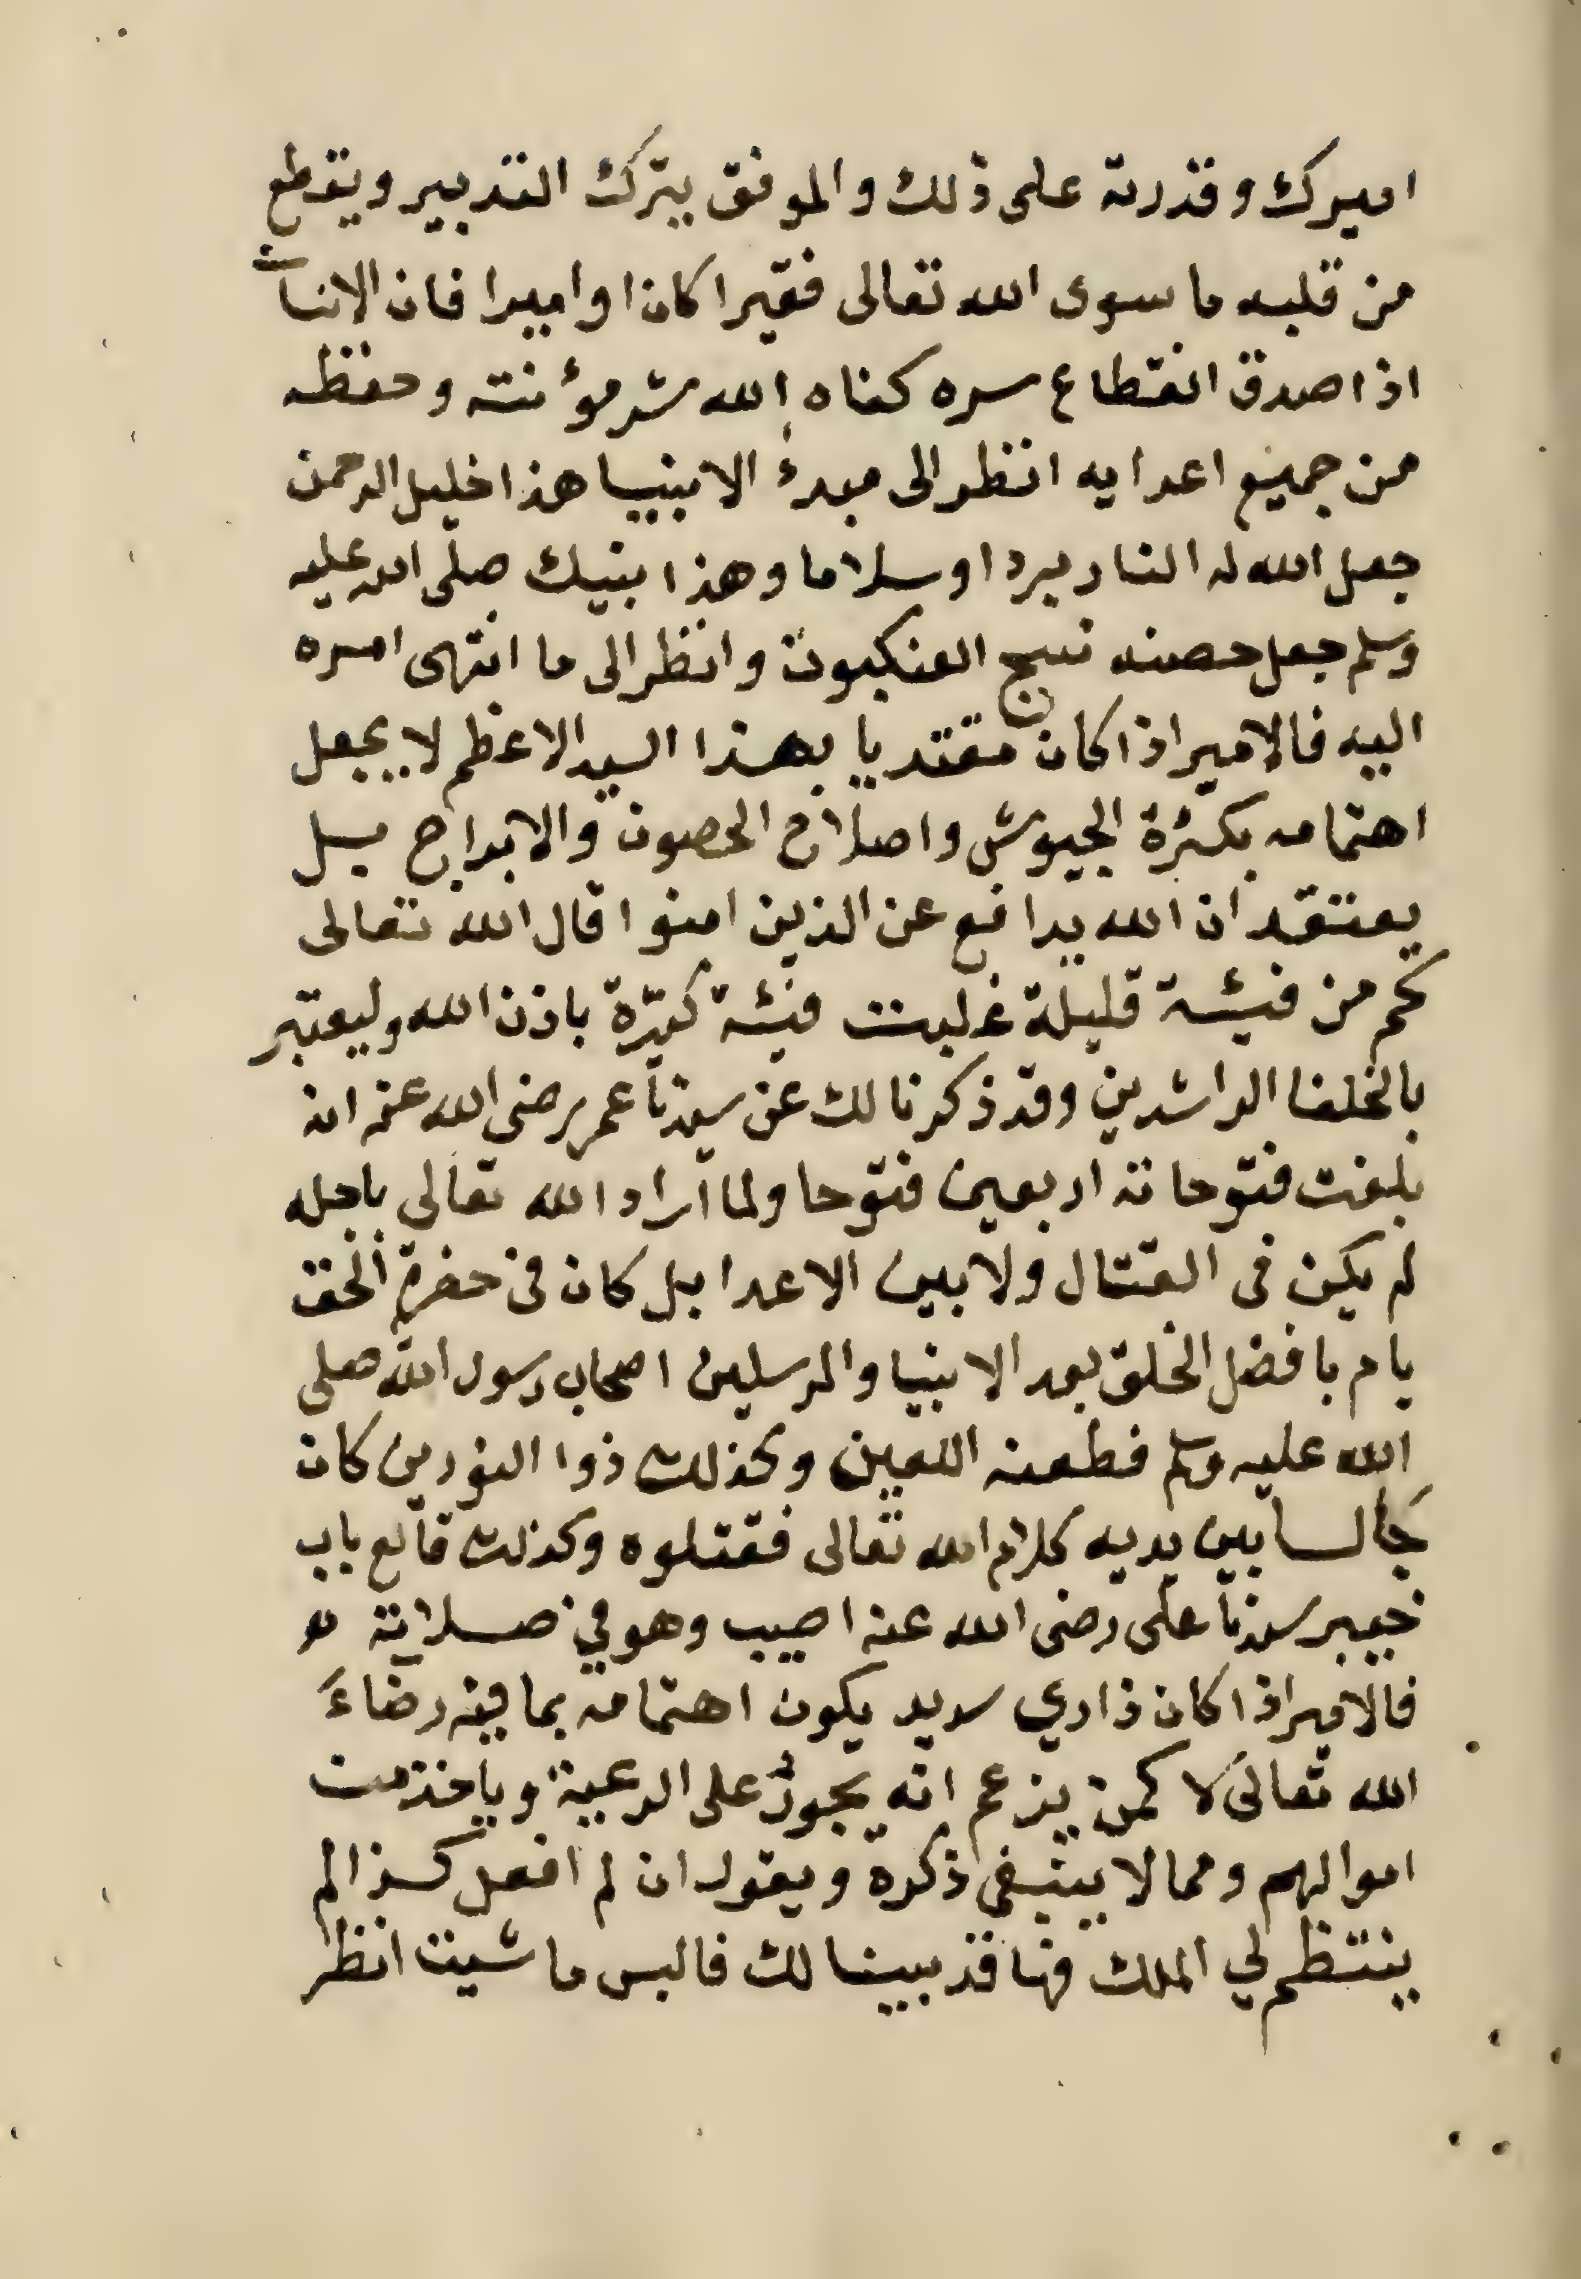 اميرك وقدرته على ذلك والموفق يترك التدبير ويقطع
من قلبه ما سوى الله تعالى فقيرا كان او اميرا فان الانسان
اذا صدق انقطاع سره كفاه الله شر مؤنته وحفظه
من جميع اعدايه انظر الى مبدء الانبيا هذا خليل الرحمن
جعل الله له النار بردا وسلاما وهذا نبيك صلى الله عليه
وسلم جعل حصنه نسج العنكبوت وانظر الى ما انتهى امره
اليه فالامير اذا كان مقتديا بهذا السيد الاعظم لا يجعل
اهتمامه بكثرة الجيوش واصلاح الحصون والابراج بل
يعتقد ان الله يدافع عن الذين امنوا قال الله تعالى
كم من فيئة قليلة غلبت فئة كثيرة باذن الله وليعتبر
بالخلفا الراشدين وقد ذكرنا لك عن سيدنا عمر رضى الله عنه انه
بلغت فتوحاته اربعين فتوحا ولما اراد الله تعالى باجله
لم يكن فى القتال ولا بين الاعدا بل كان فى حضرة الحق
يام بافضل الخلق بعد الانبيا والمرسلين اصحاب رسول الله صلى
الله عليه وسلم فطعنه اللعين وكذلك ذوا النورين كان
جالسا بين يديه كلام الله تعالى فقتلوه وكذلك قالع باب
خيبر سيدنا على رضى الله عنه اصيب وهو في صلاته
فالامير اذا كان ذا راي سديد يكون اهتمامه بما فيه رضاء
الله تعالى لا كمن يزعم انه يجور على الرعية وياخذ من
اموالهم ومما لا ينبغى ذكره ويقول ان لم افعل كذا لم
ينتظم لي الملك فها قد بينا لك فالبس ما شيت انظر